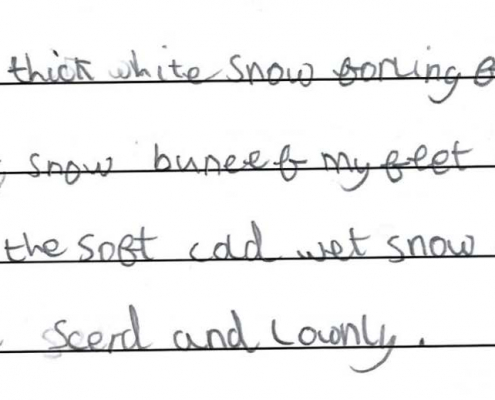 thick white snow forling
snow buneef my feet
the soft cold wet snow
Scerd and Lownly.